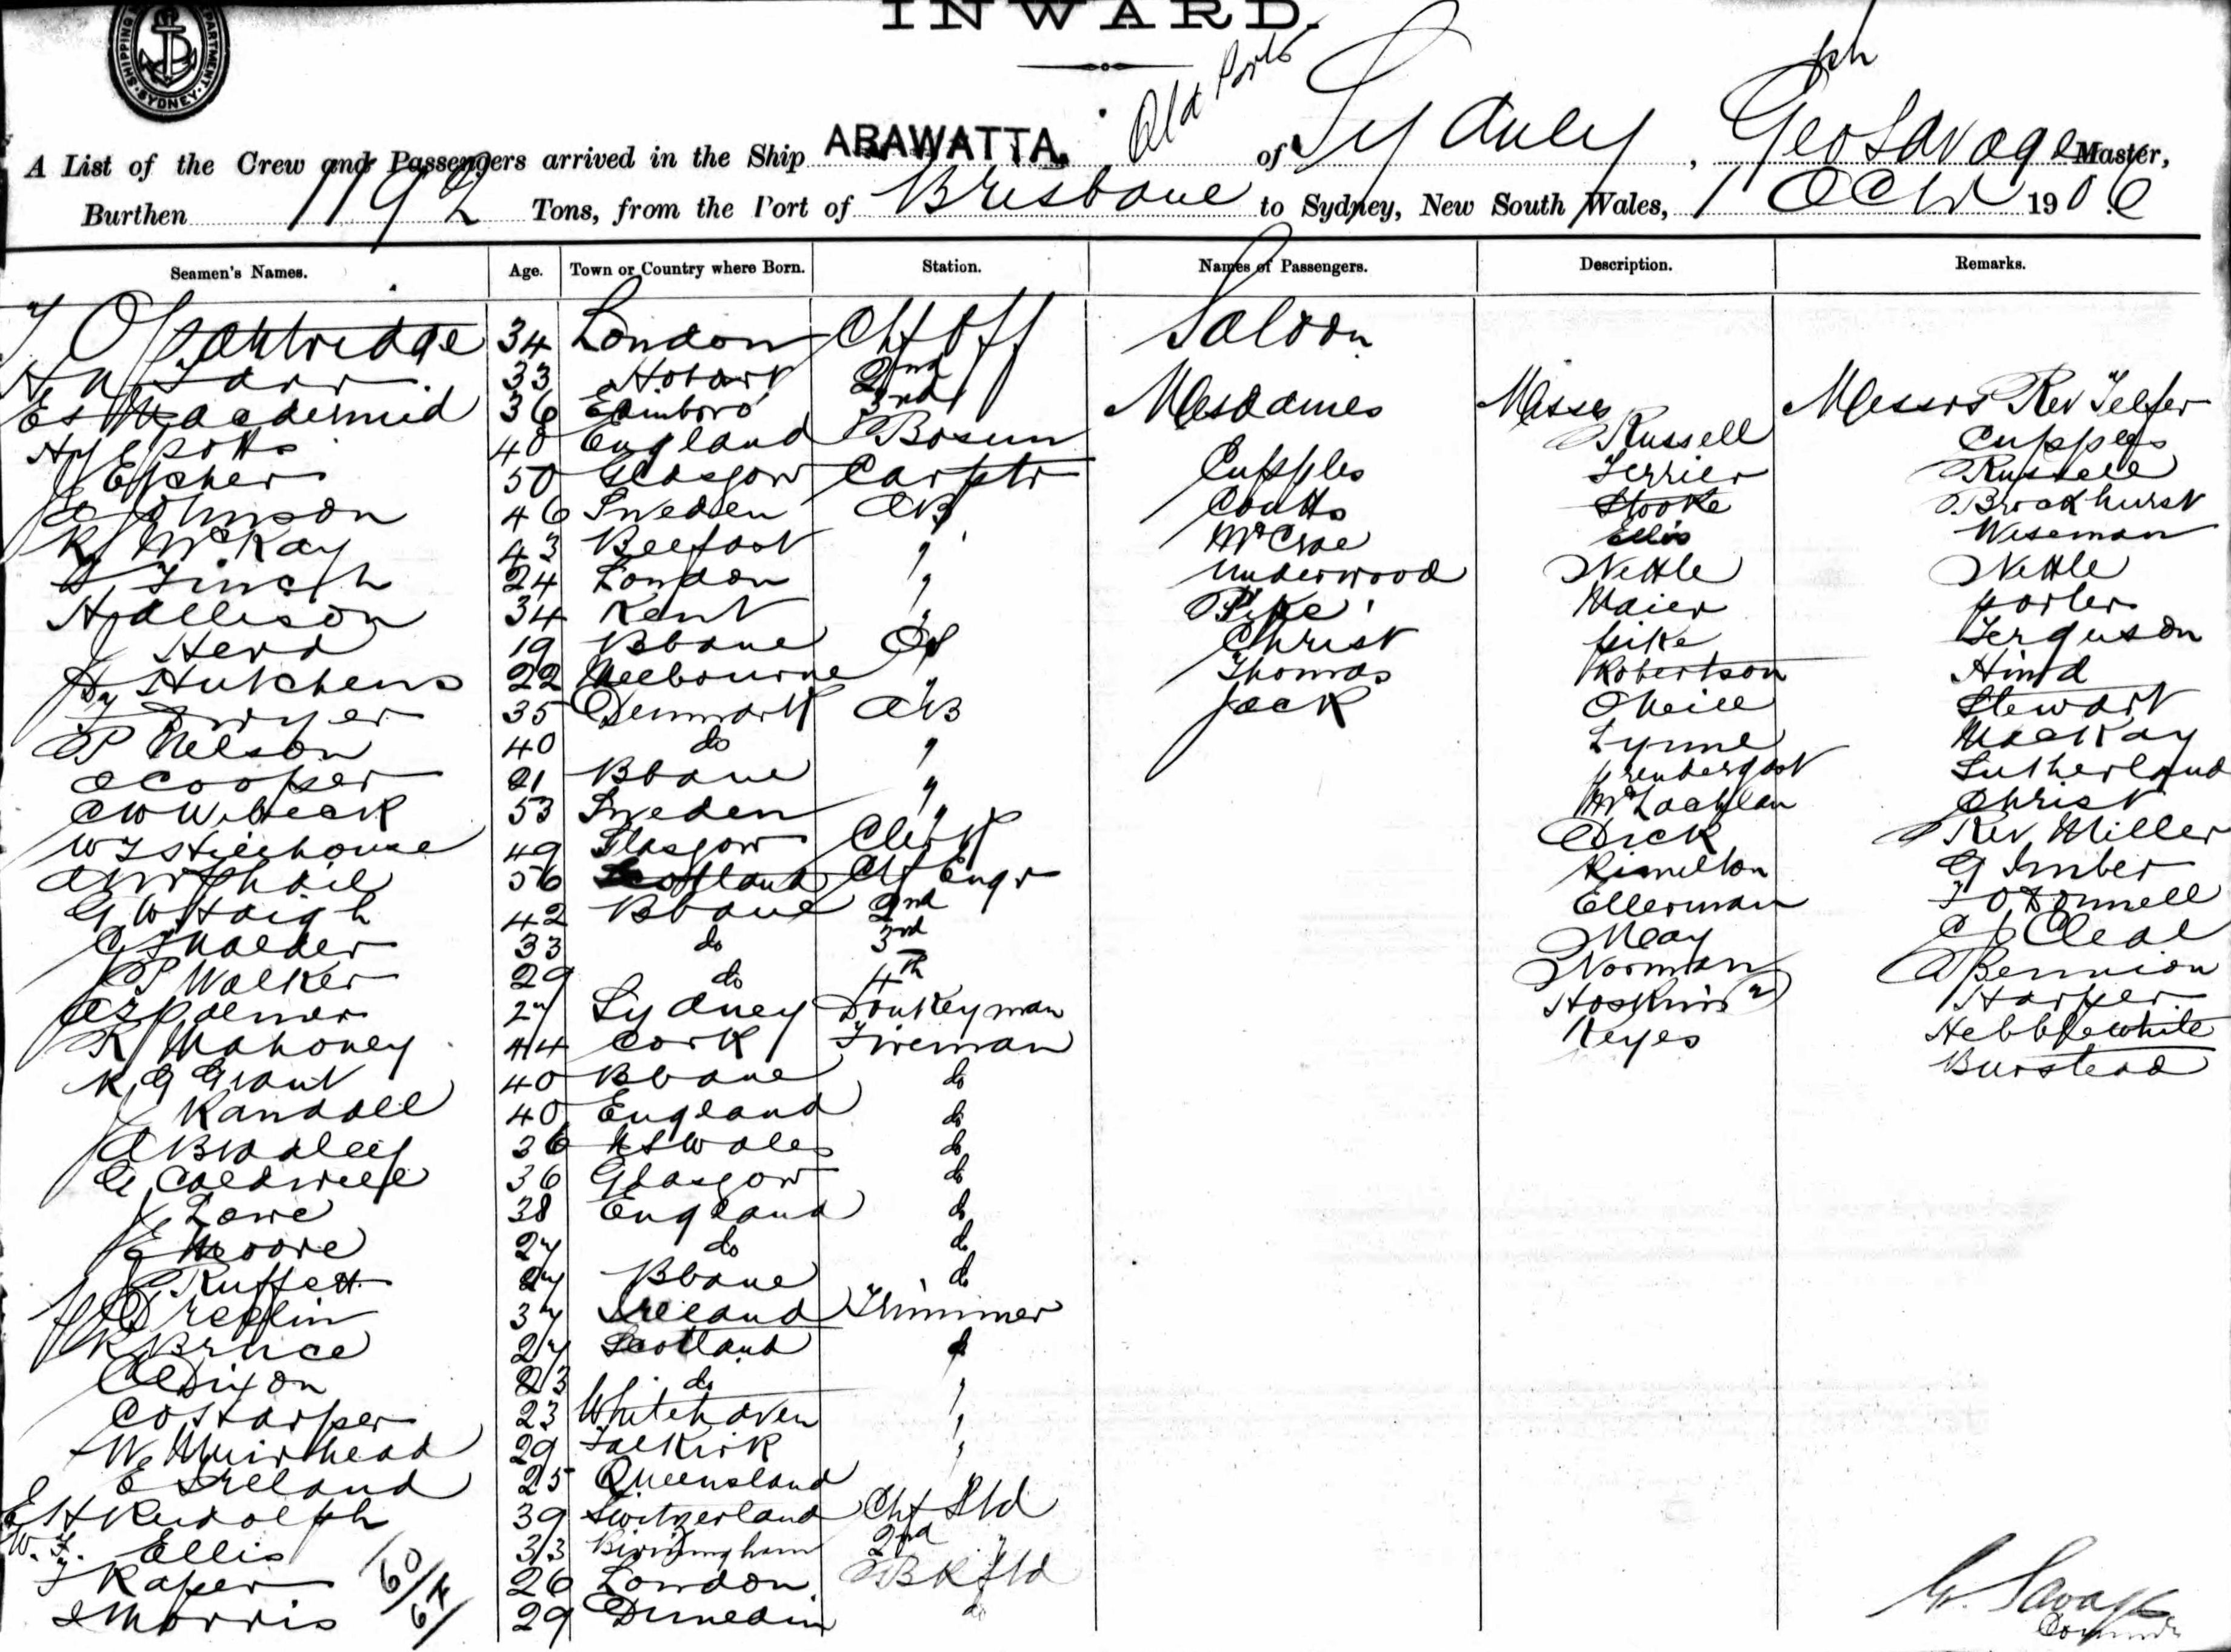 INWARD.
SHIPPING DEPARTMENT. SYDNEY.
A List of the Crew and Passengers arrived in the Ship ARAWATTA. Qld Ports of Sydney, Geo Savage Master,
Burthen 1192 Tons, from the Port of Brisbane to Sydney, New South Wales, 1 Oct 1906
Seamen's Names. Age. Town or Country where Born. Station. Names of Passengers. Description. Remarks.
34 London Chf Off Saloon
33 Hobart 2nd
Macdermid 36 Edinboro 3rd Mesdames Misses Messrs Rev Telfer
Hy Potts 48 England Bosun Russell Cupples
Fisher 50 Glasgow Carptr Cupples Ferrier Russell
Johnson 46 Sweden AB Coutts Stooke Brockhurst
R McKay 43 Belfast " McCrae Ellis Wiseman
Finch 24 London " Underwood Nettle Nettle
H Allison 34 Kent " Pike Maier Porter
J Herd 19 Bbane OS Christ Pike Ferguson
Hy Hutchens 22 Melbourne " Thomas Robertson Hind
Dwyer 35 Denmark AB Jack ONeill Stewart
P Nelson 40 do " Lynne MacKay
A Cooper 21 Bbane " Prendergast Sutherland
C W Wibeck 53 Sweden " McLachlan Christ
W J Stilehouse 49 Glasgow Clerk Dick Rev Miller
A McPhail 56 Scotland Chf Engr Rimelton G Imber
G W Haigh 42 Bbane 2nd Ellerman J O'Donnell
33 do 3rd May C J Cleal
P Walker 29 do 4th Norman A Bennion
Palmer 27 Sydney Donkeyman Hoskins (2) Harper
R Mahoney 44 Cork Fireman Keyes Hebblewhite
R G Grant 40 Bbane do Burstead
J Randall 40 England do
A Bradley 36 N S Wales do
G Caldwell 36 Glasgow do
J Lowe 38 England do
E Moore 27 do do
Ruffett 27 Bbane do
J Devlin 37 Ireland Trimmer
R Bruce 27 Scotland do
C Dixon 23 do "
C O Harper 23 Whitehaven "
W Muirhead 29 Falkirk "
E Ireland 25 Queensland
E H Rudolph 39 Switzerland Chf Std
W. F. Ellis 33 Birmingham 2nd "
J Raper 26 London BK Std
Morris 29 Dunedin do
60/67
G. Savage
Commdr